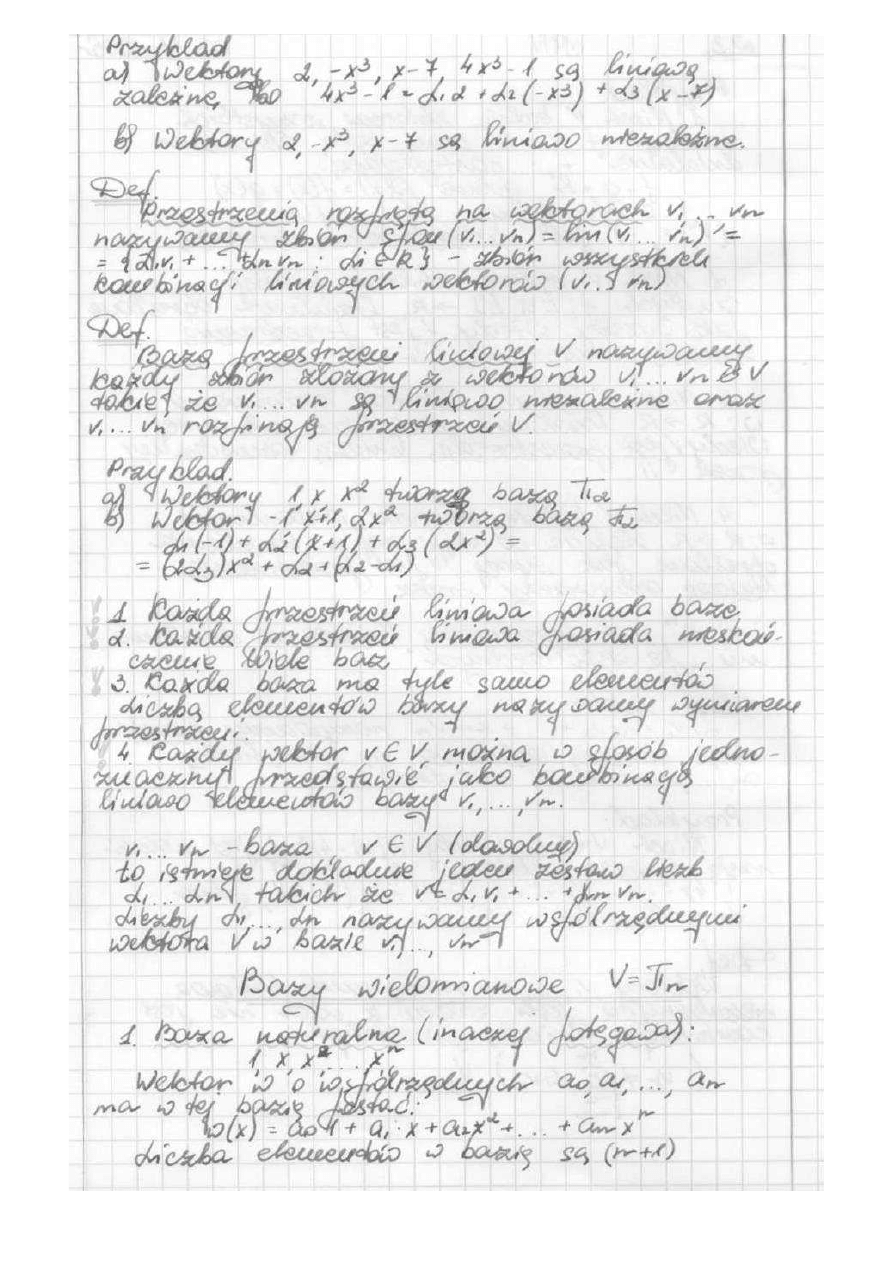 Przykład
a) Wektory 2, -x³, x-7, 4x³-1 są liniową
zależne, bo 4x³-1 = α₁2 + α₂(-x³) + α₃(x-7)
b) Wektory 2, -x³, x-7 są liniowo niezależne.
Def.
Przestrzenią rozpiętą na wektorach v₁ ... vn
nazywamy zbiór span(v₁...vn) = lin(v₁... vn) =
= {α₁v₁ + ... αn vn ; αi ∈ R} - zbiór wszystkich
kombinacji liniowych wektorów (v₁...vn)
Def.
Bazą przestrzeni liniowej V nazywamy
każdy zbiór złożony z wektorów v₁...vn ∈ V
takie, że v₁...vn są liniowo niezależne oraz
v₁...vn rozpinają przestrzeń V.
Przykład.
a) Wektory 1 x x² tworzą bazą Π₂
b) Wektor -1 x+1, 2x² tworzą bazą Π₂
α₁(-1) + α₂(x+1) + α₃(2x²) =
= (2α₃)x² + α₂ + (α₂-α₁)
1. Każda przestrzeń liniowa posiada bazę.
2. Każda przestrzeń liniowa posiada nieskoń-
czenie wiele baz
3. Każda baza ma tyle samo elementów
Liczbą elementów bazy nazywamy wymiarem
przestrzeni.
4. Każdy wektor v ∈ V można w sposób jedno-
znaczny przedstawić jako kombinacją
liniowo elementów bazy v₁,...,vn.
v₁...vn - baza v ∈ V (dowolny)
to istnieje dokładnie jeden zestaw liczb
α₁...αn, takich że v = α₁v₁ + ... + αn vn.
Liczby α₁,...,αn nazywamy współrzędnymi
wektora V w bazie v₁,..., vn
Bazy wielomianowe V = Πn
1. Baza naturalna (inaczej potęgowa):
1 x x² ... xⁿ
Wektor w o współrzędnych a₀, a₁, ..., an
ma w tej bazie postać:
w(x) = a₀ 1 + a₁ · x + a₂x² + ... + an xⁿ
Liczba elementów w bazią są (n+1)